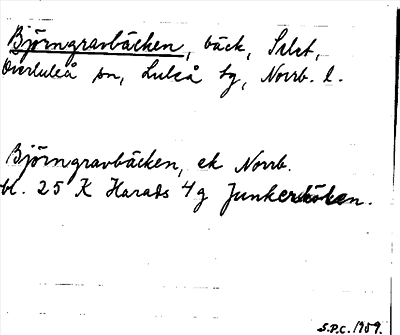 Björngravbäcken, bäck,
Överluleå sn, Luleå tg, Norrb. l.
Björngravbäcken, ek Norrb.
bl. 25 K Harads 4 g Junkersköken.
S.P.C. 1959.